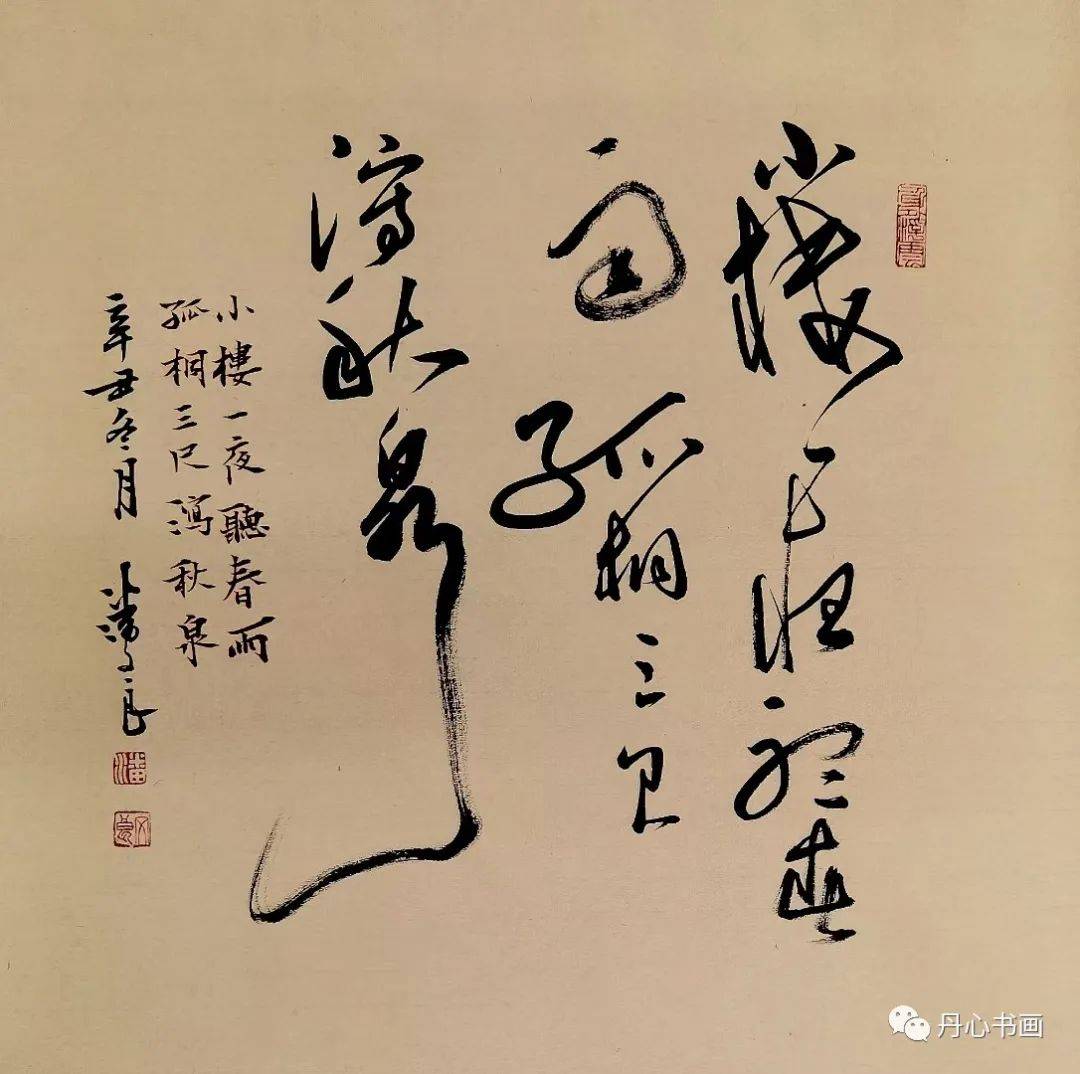 小樓一夜聽春
雨孤桐三尺
瀉秋泉
小樓一夜聽春雨
孤桐三尺瀉秋泉
辛丑冬月 潘文良
潘
文良
丹心书画